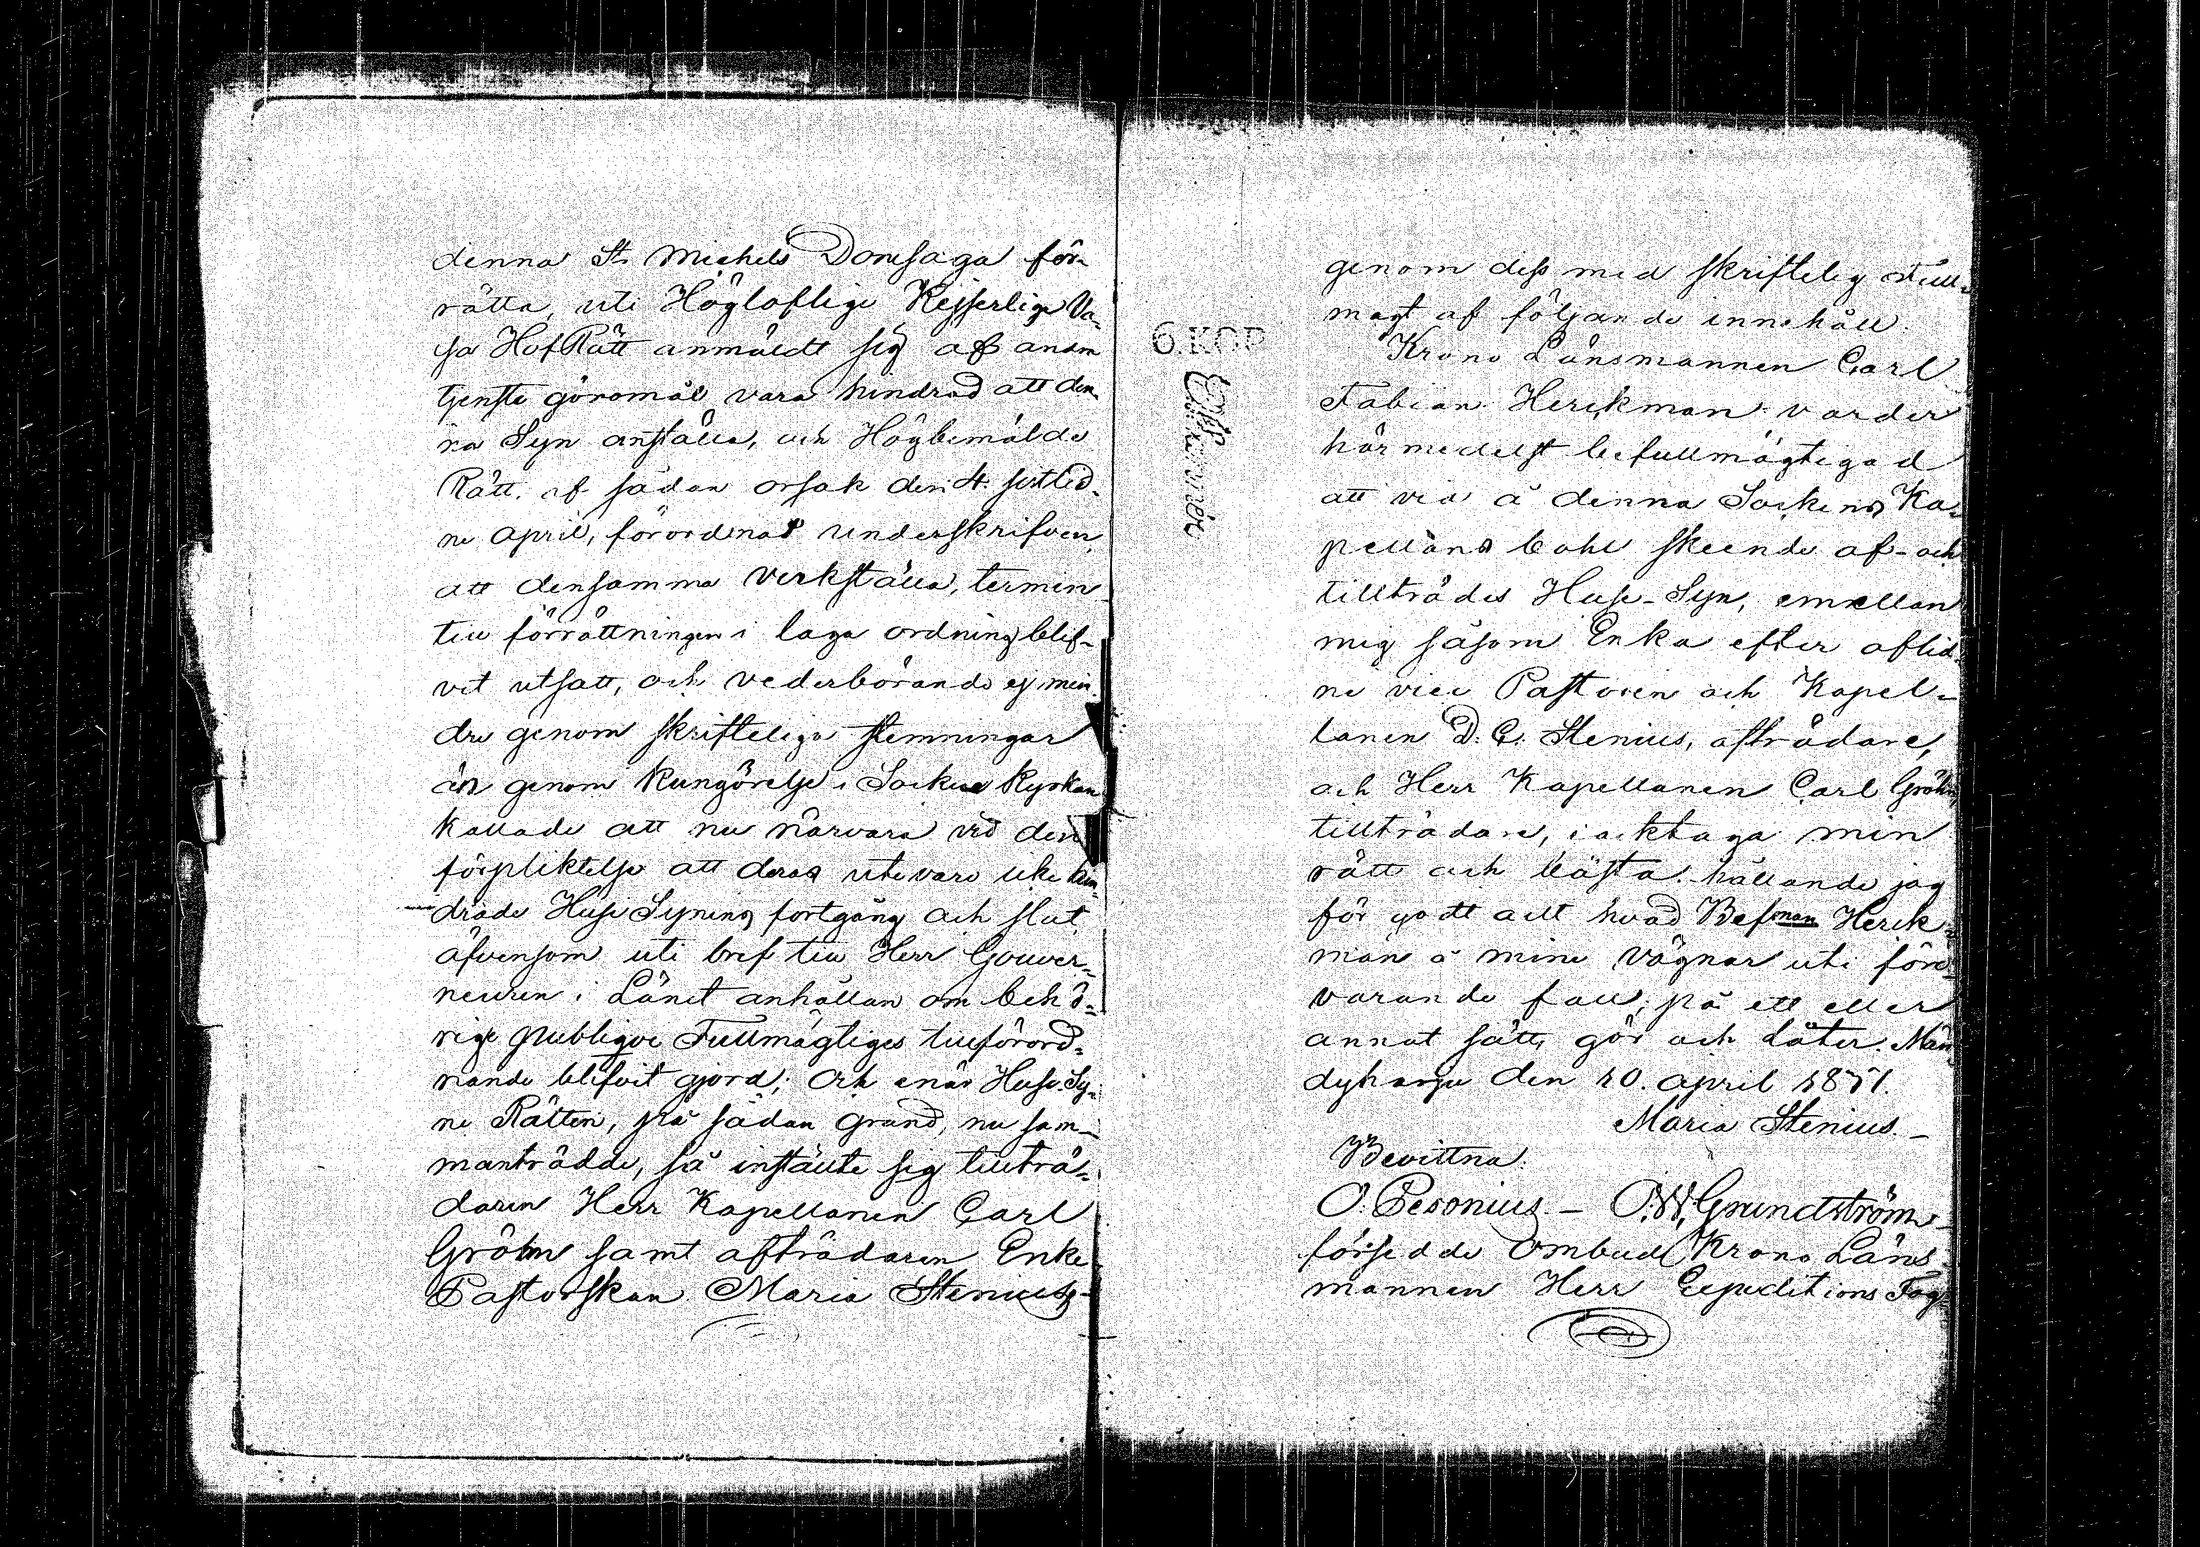 denna St. Michels Domsaga för-
rätta, uti Högloflige Kejserlige Va-
sa HofRätt anmäldt sig af annan
tjenste göromål vara hindrad att den-
na Syn anställa, och Högbemälde
Rätt, af sådan orsak den 4. sistled-
ne April, förordnat underskrifven,
att densamma verkställa, termin
till förrättningen i laga ordning blif-
vit utsatt, och vederbörande ej min-
dre genom skrifteliga stemningar
än genom kungörelse i Sockne Kyrkan
kallade att nu närvara vid den
förpliktelse att deras utevaro icke hin-
drade Huse Synens fortgång och slut,
äfvensom uti bref till Herr Gouver-
neuren i Länet anhållan om behö-
rige publique Fullmägtiges tillförord-
nande blifvit gjord; Och enär Huse-Sy-
ne Rätten, på sådan grund, nu sam-
manträdde, så inställte sig tillträ-
daren Herr Kapellanen Carl
Gröhn samt afträdaren Enke
Pastorskan Maria Stenius,
6. KOP
genom dess med skriftelig Full-
magt af följande innehåll.
Krono Länsmannen Carl
Fabian Herckman varder
härmedelst befullmägtigad
att vid å denna Sockens Ka-
pellans bohl skeende af- och
tillträdes Huse-Syn, emellan
mig såsom Enka efter aflid-
ne vice Pastoren och Kapel-
lanen D. C. Stenius, afträdare,
och Herr Kapellanen Carl Gröhn,
tillträdare, iakttaga min
rätt och bästa hållande jag
för godt allt hvad Bef:man Herck-
man å mine vägnar uti före-
varande fall, på ett eller
annat sätt, gör och låter. Män-
dyharju den 10. April 1851.
Maria Stenius.-
Bevittna:
O. Pesonius.- O.W. Grundström-
försedde Ombud Krono Läns-
mannen Herr Expeditions Fog-